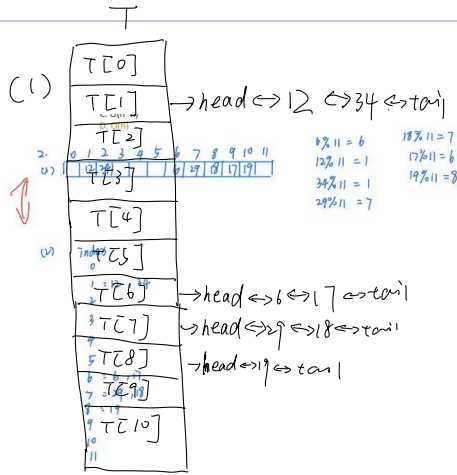 T
(1)
T[0]
T[1] → head ↔ 12 ↔ 34 ↔ tail
D. O(n)
T[2]
2. 0 1 2 3 4 5 6 7 8 9 10 11
(1) 12 34 6 29 18 17 19
T[3]
6%11 = 6
12%11 = 1
34%11 = 1
29%11 = 7
18%11 = 7
17%11 = 6
19%11 = 8
T[4]
(2) index
T[5]
0
1 = 12
T[6] → head ↔ 6 ↔ 17 ↔ tail
2
3 T[7] → head ↔ 29 ↔ 18 ↔ tail
4
5 T[8] → head ↔ 19 ↔ tail
6 = 6, 17
7 = 29, 18
T[9]
8 = 19
9 T[10]
10
11